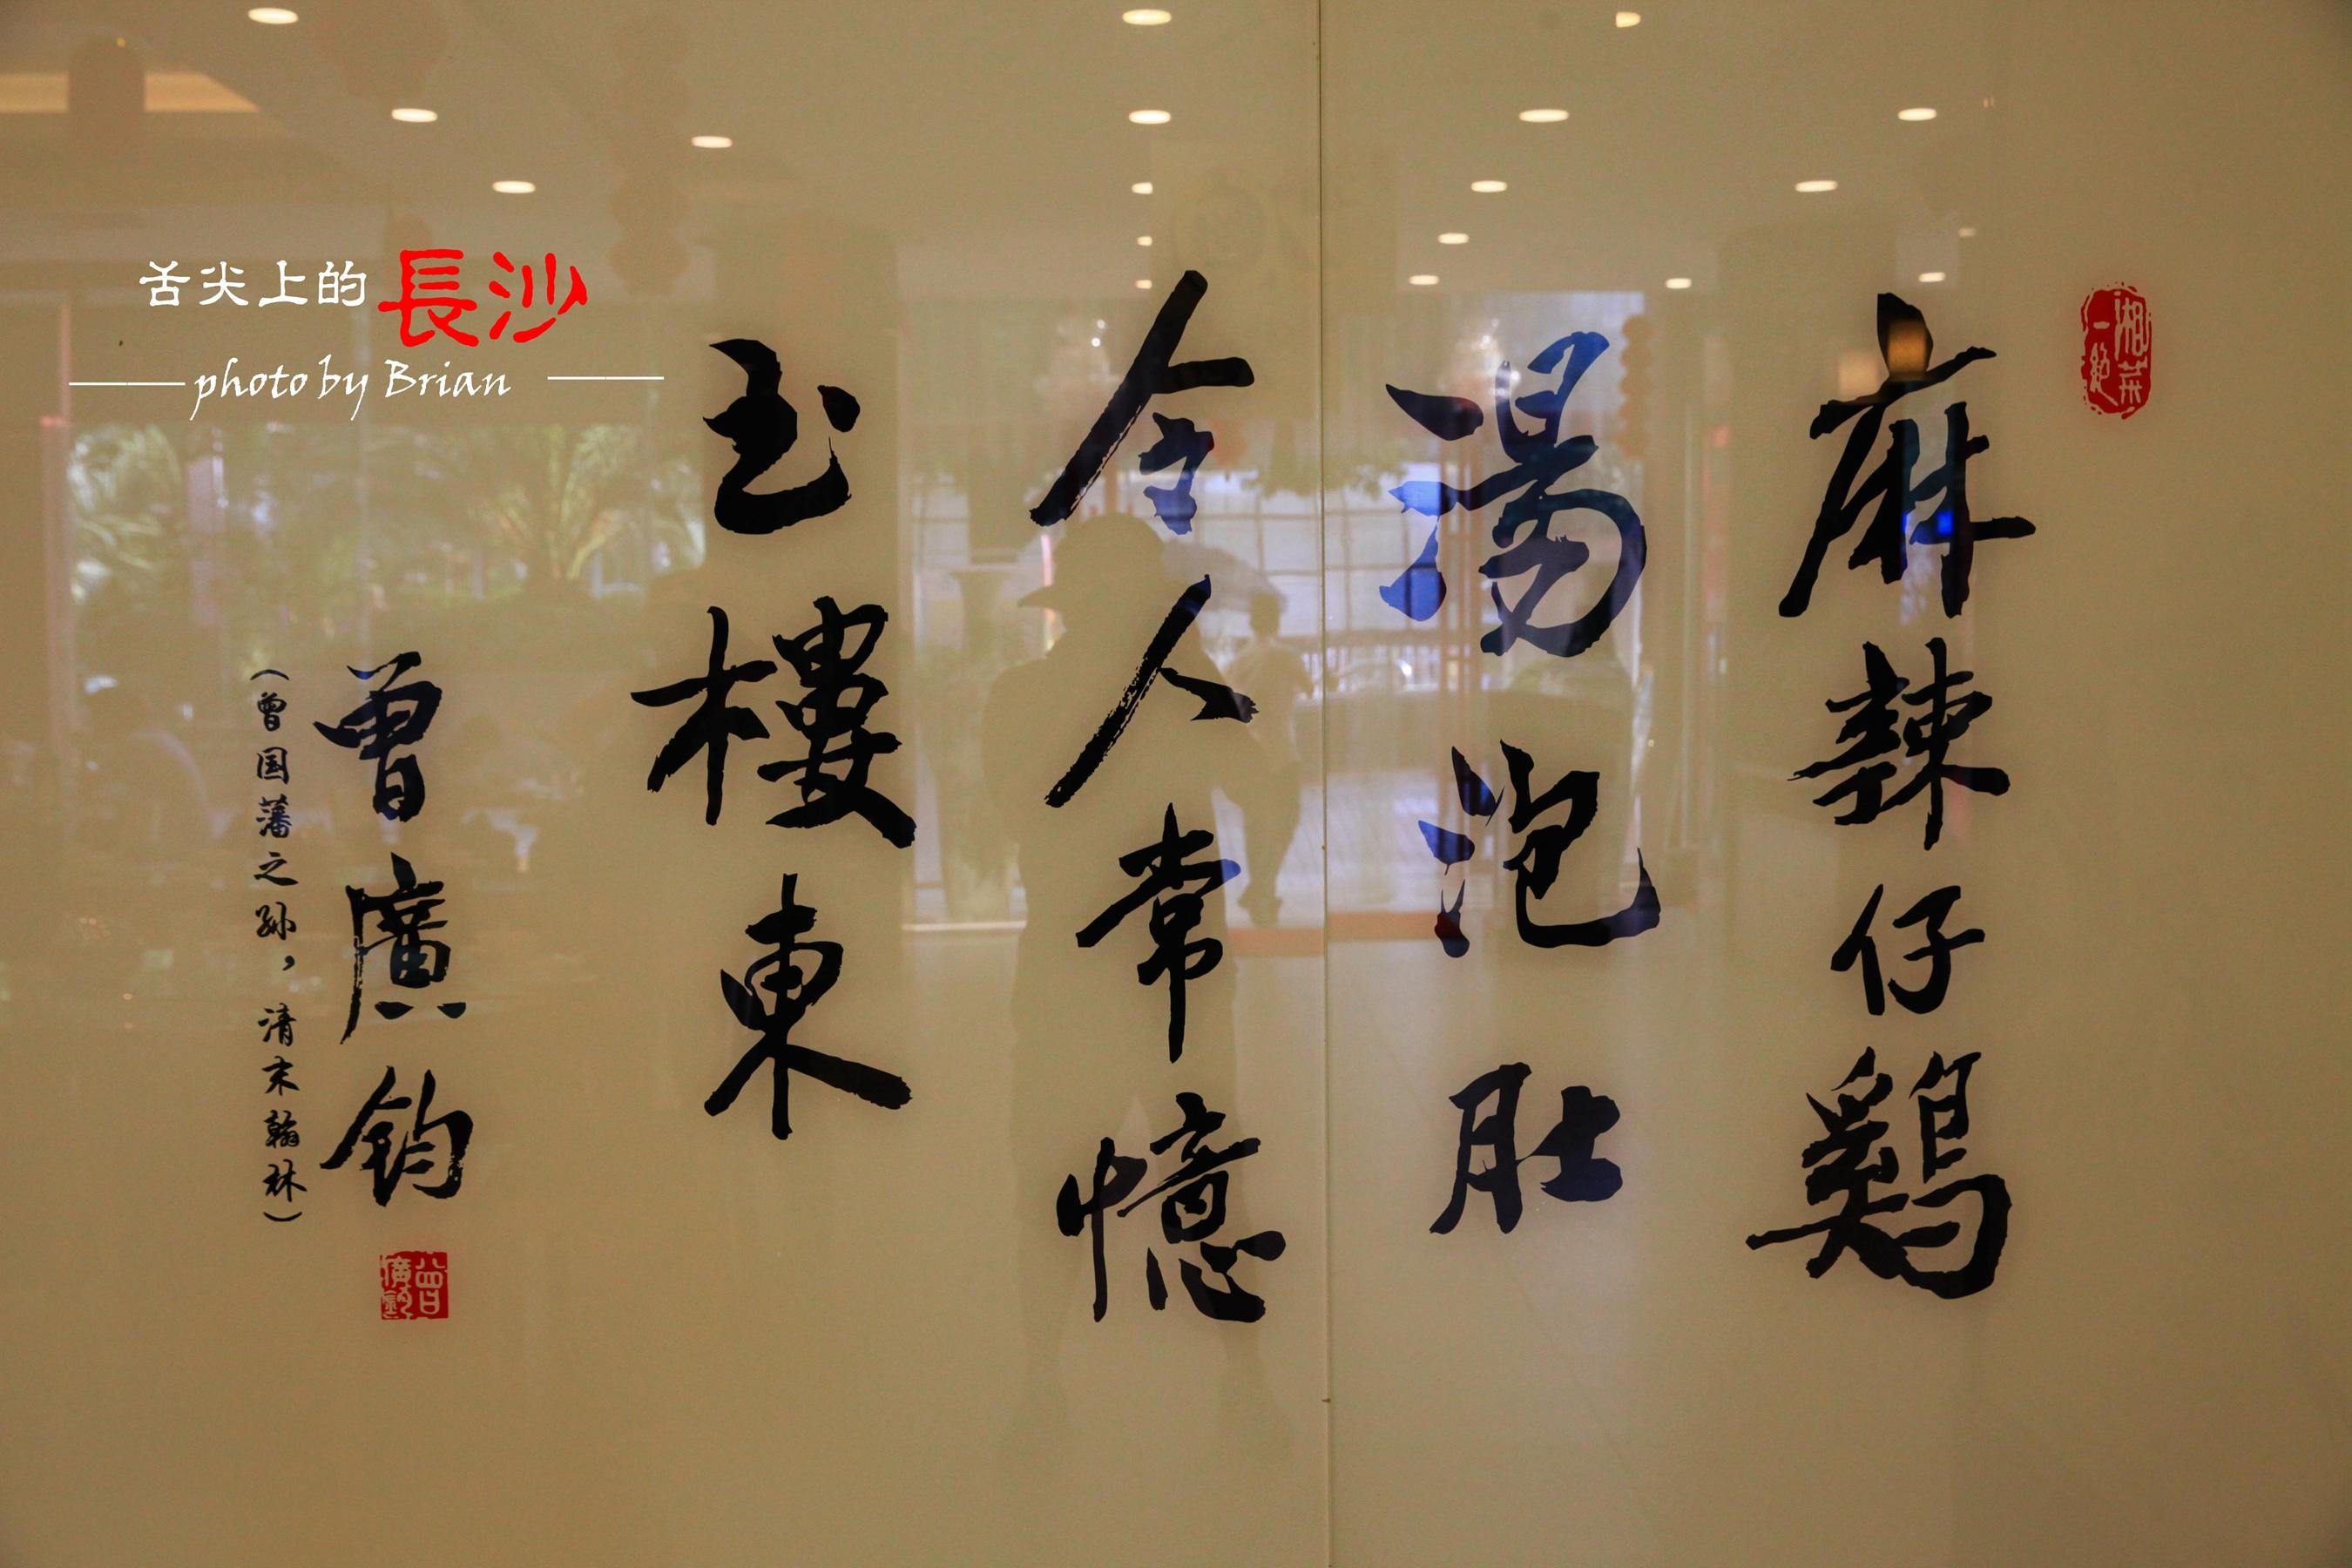 湘菜
一絶
麻辣仔鷄
湯泡肚
令人常憶
玉樓東
曾廣鈞
(曾国藩之孙，清末翰林)
曾廣鈞
舌尖上的長沙
photo by Brian